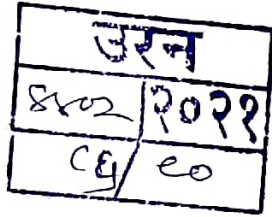 उरन
४४०२ २०२२
८६/९०